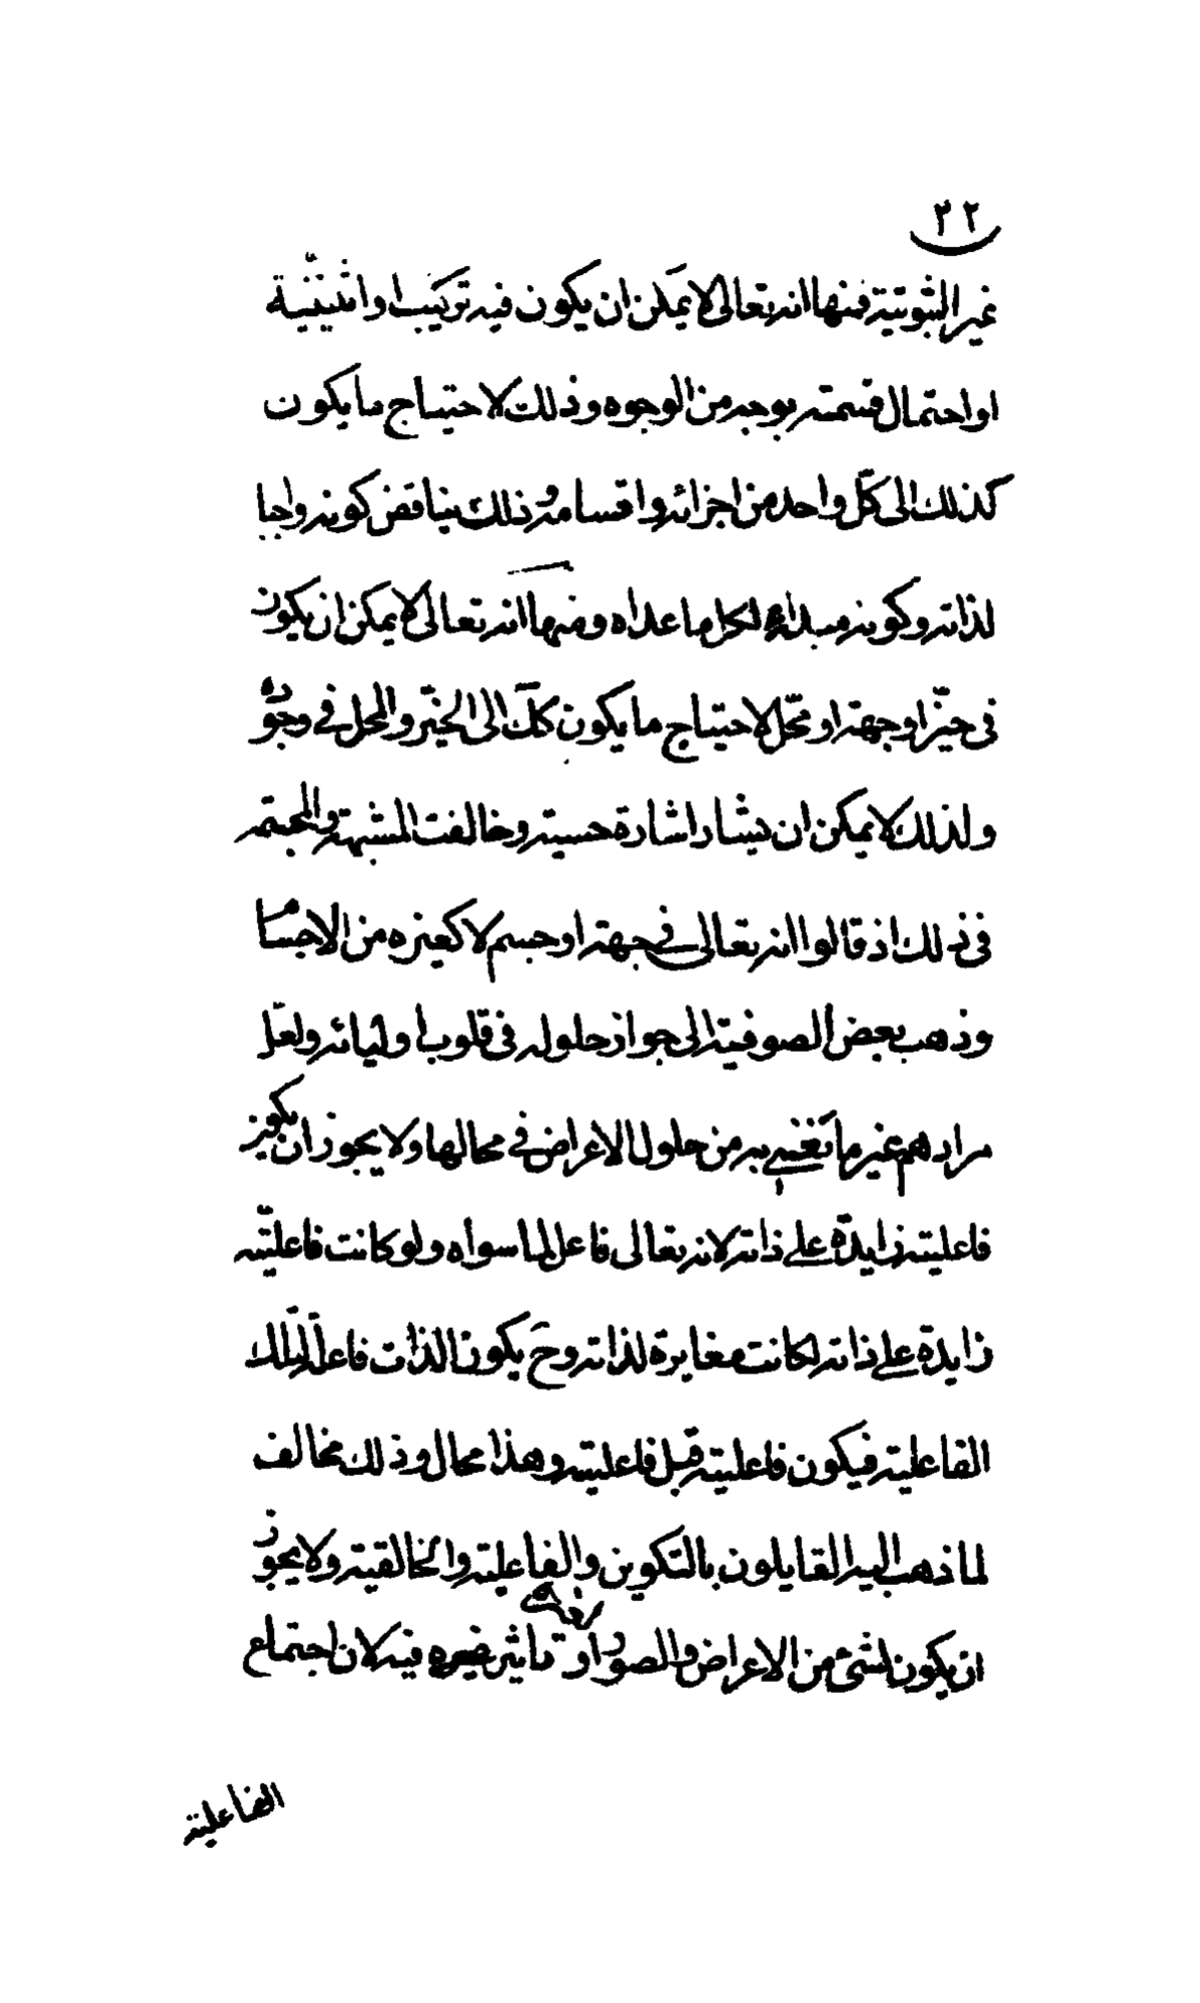 ٣٢
غير الثبوتية فمنها انه تعالى لا يمكن ان يكون فيه تركيب او اثنينية
او احتمال قسمته بوجه من الوجوه وذلك لاحتياج ما يكون
كذلك الى كل واحد من اجزائه واقسامه وذلك يناقض كونه واجبا
لذاته وكونه مبداء لكل ما عداه ومنها انه تعالى لا يمكن ان يكون
فى حيّز او جهة او محّل لاحتياج ما يكون كك الى الحيّز والمحل في وجوده
ولذلك لا يمكن ان يشار اشارة حسية وخالفت المشبهة والمجسمة
فى ذلك اذ قالوا انه تعالى في جهة او جسم لا كغيره من الاجسام
وذهب بعض الصوفية الى جواز حلوله فى قلوب اوليائه ولعلّ
مرادهم غير ما نعنى به من حلول الاعراض في محالها ولا يجوز ان يكون
فاعليته زايدة على ذاته لانه تعالى فاعل لما سواه ولو كانت فاعليّته
زايدة على ذاته لكانت مغايرة لذاته وح يكون الذات فاعلة لتلك
الفاعلية فيكون فاعلية قبل فاعليته وهذا محال وذلك مخالف
لما ذهب اليه القايلون بالتكوين والفاعلية والخالقية ولا يجوز
ان يكون لشئ من الاعراض والصور او تاثير غيره فيه لان اجتماع
الفاعلية